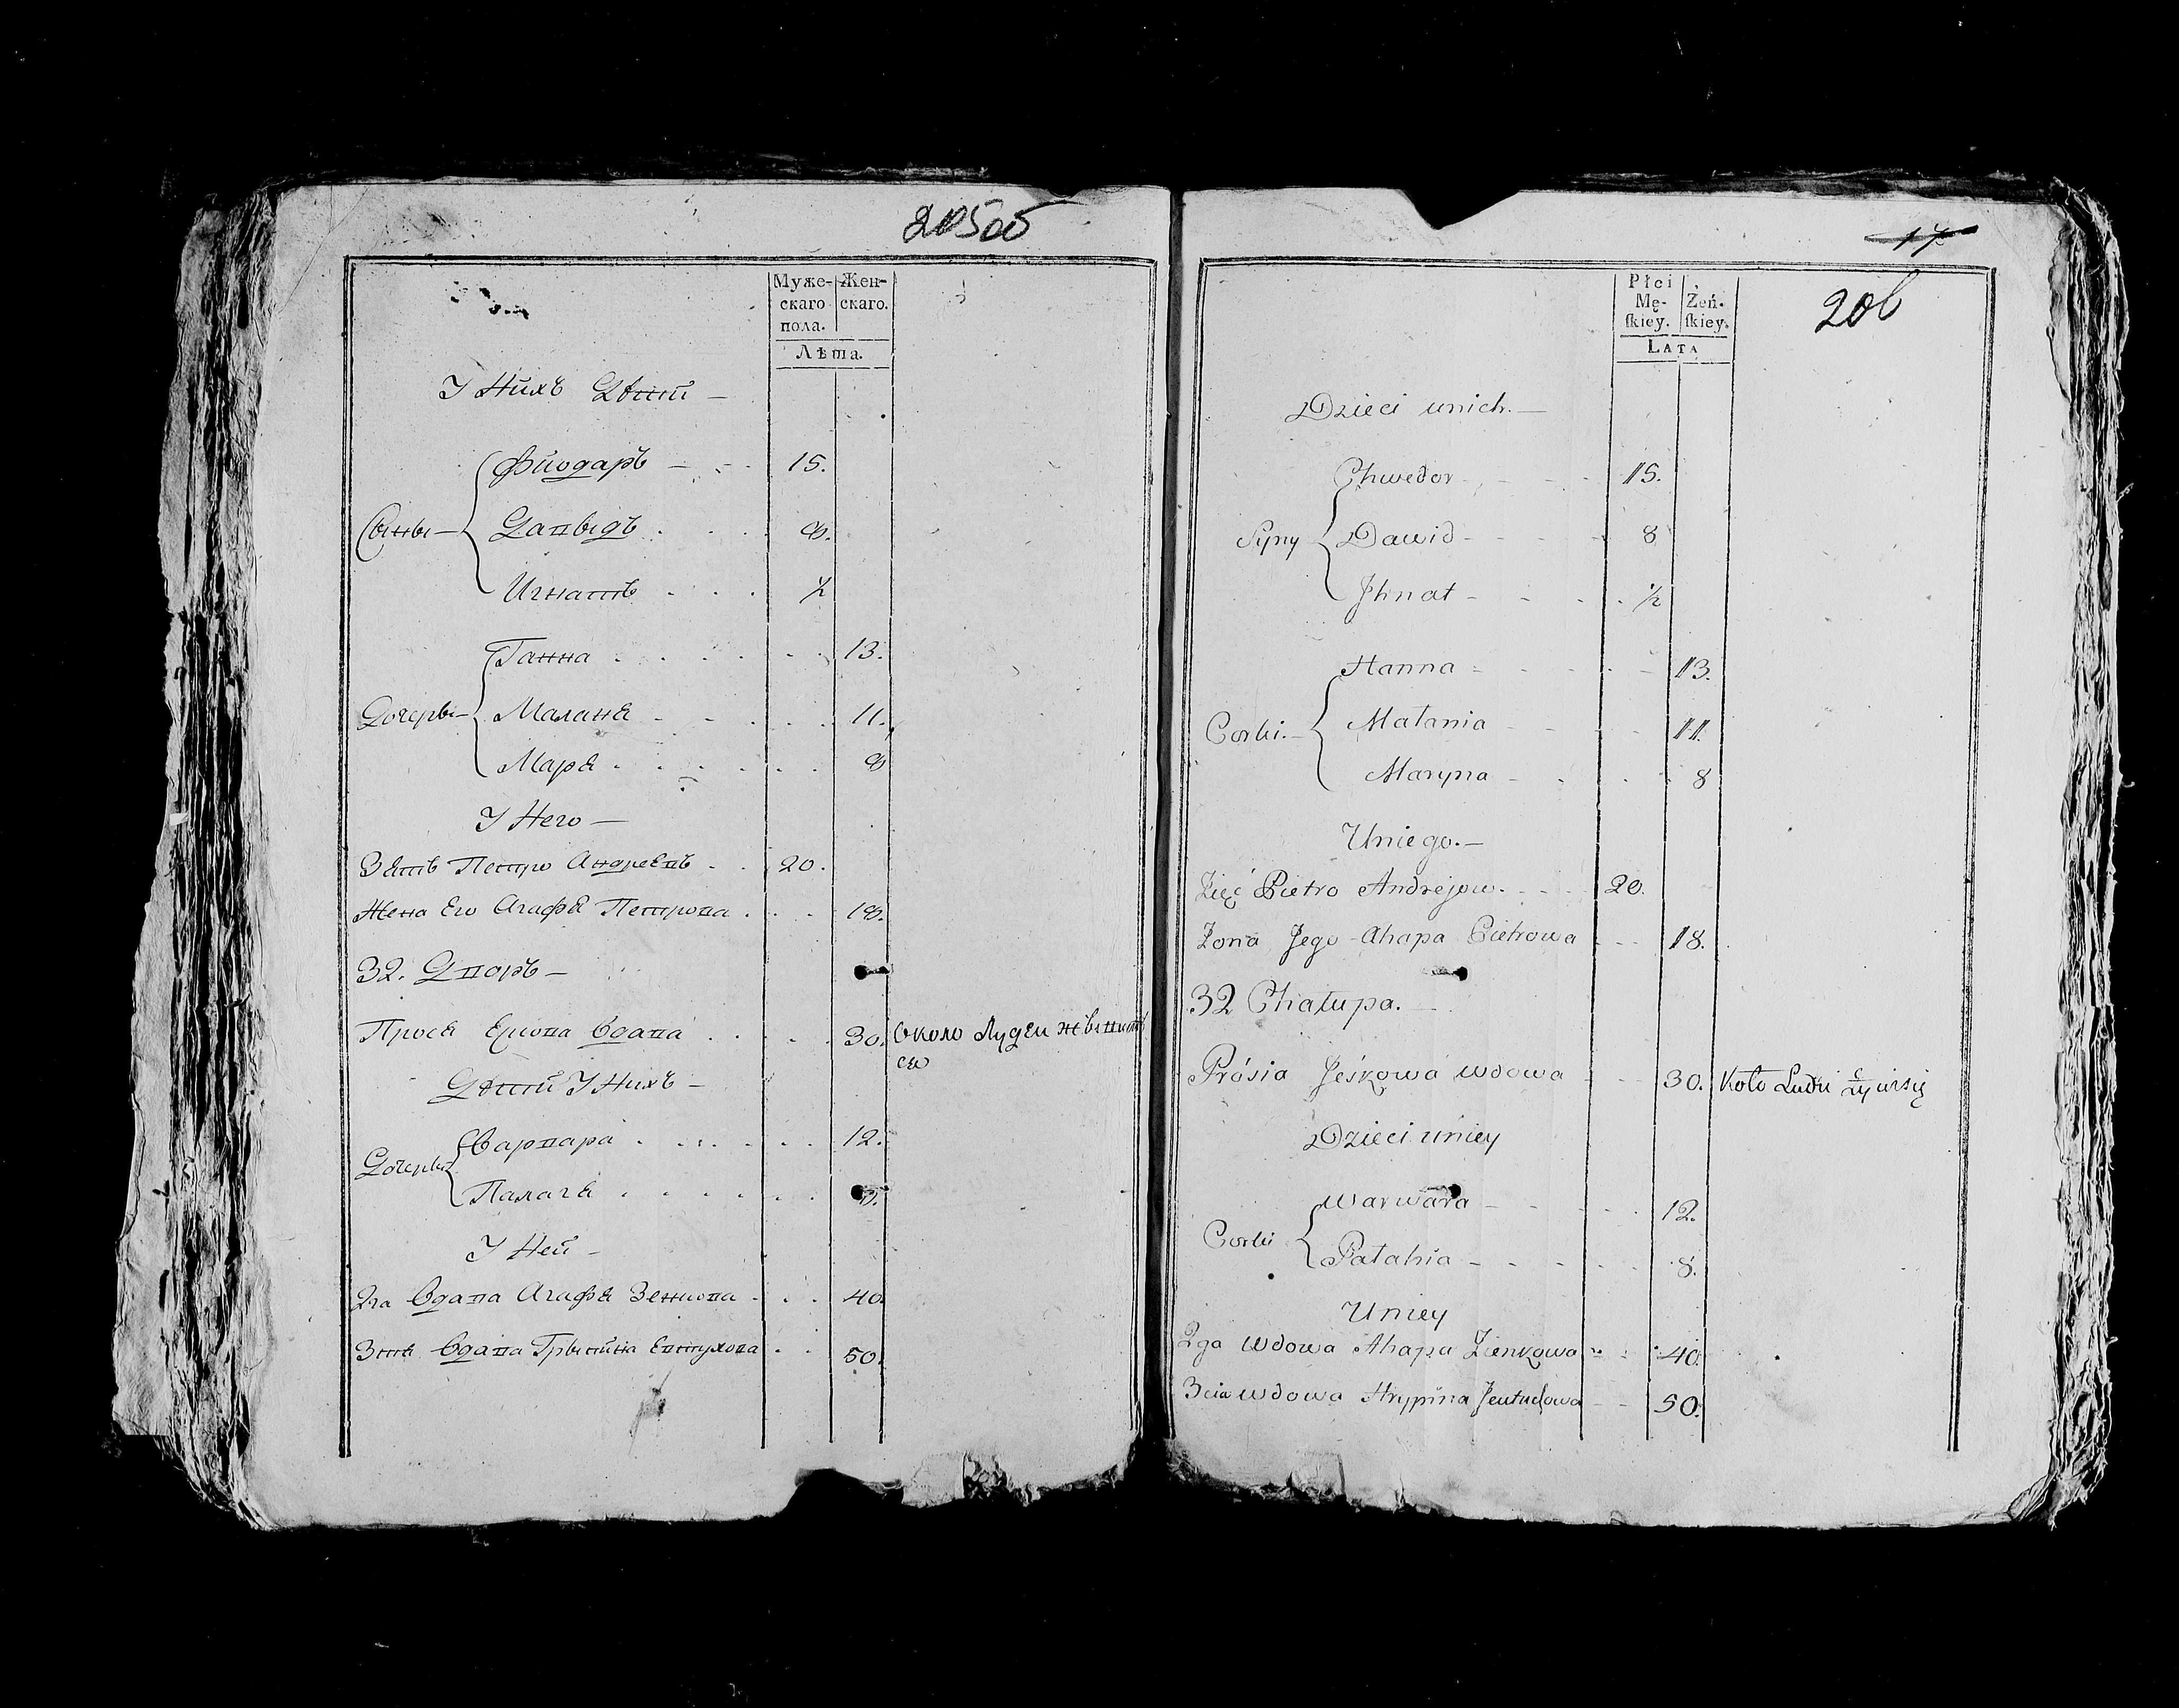 205об
Муже-
скаго
пола.
Жен-
скаго.
Лѣта.
У Нихъ Дѣти —
Сыны —
Фиодаръ 15.
Давыдъ 8.
Игнатъ ½
Дочеры —
Ганна 13.
Маланя 11.
Маря 8
У Него —
Зять Петро Андреевъ 20.
Жена Его Агафя Петрова 18.
32. Дворъ —
Прося вдава 30. Около Лудеи жывить
ся
Дѣти У Нихъ —
Дочеры
Варвара 12.
Палагя
У Ней —
2га вдава Агафя Зенкова 40.
3тя вдава Грыпина Евтухова 50.
17
206
Płci
Mę-
skiey.
Żeń-
skiey.
LATA
Dzieci unich. —
Syny
Chwedor 15.
Dawid 8
Jhnat ½
Corki. —
Hanna 13.
Małania 11.
Maryna 8
Uniego. —
Zięć Pietro Andrejow. 20.
Zona Jego Ahapa Pietrowa 18.
32 Chałupa. —
Prósia Jeśkowa wdowa 30. Koło Ludzi żywi się
Dzieci uniey
Corki
Warwara 12.
Pałahia 8.
Uniey
2ga wdowa Ahapa Zienkowa 40.
3cia wdowa Hrypina Jeutuchowa 50.